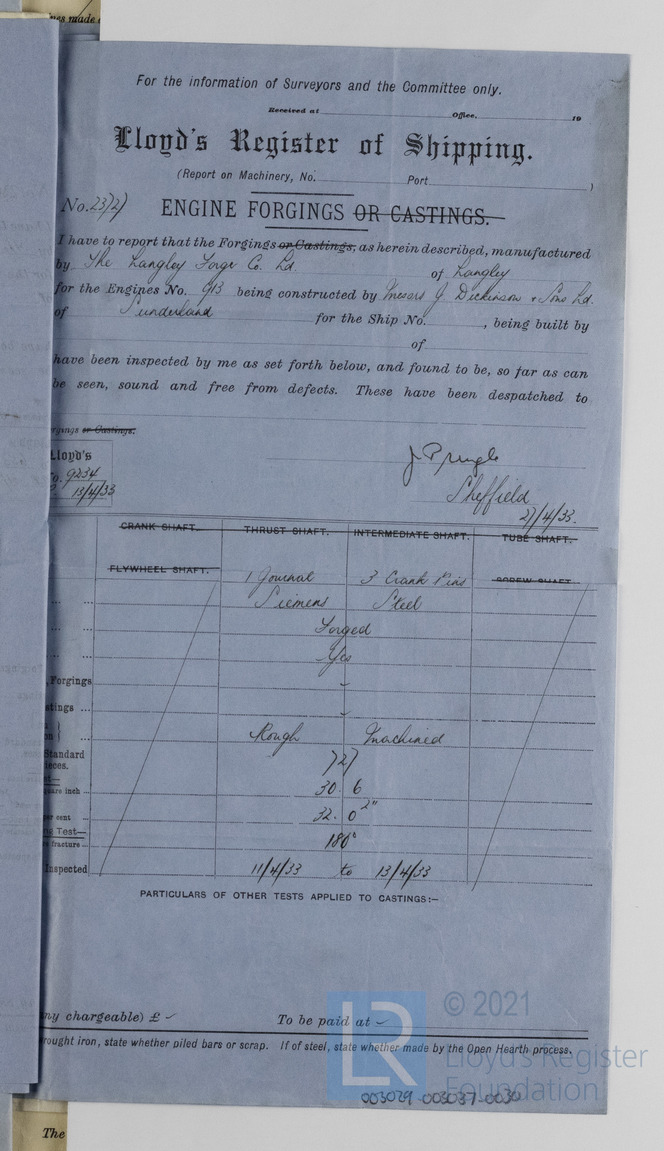 es made
For the information of Surveyors and the Committee only.
Received at Office, 19
Lloyd's Register of Shipping.
(Report on Machinery, No. Port )
No. 2372)
ENGINE FORGINGS OR CASTINGS.
I have to report that the Forgings or Castings, as herein described, manufactured
by The Langley Forge Co. Ld. of Langley
for the Engines No. 913 being constructed by Messrs J. Dickinson & Sons Ld.
of Sunderland for the Ship No. , being built by
of
have been inspected by me as set forth below, and found to be, so far as can
be seen, sound and free from defects. These have been despatched to
rgings or Castings.
Lloyd's
o. 9234
13/4/33
J. Pringle
Sheffield
27/4/33.
CRANK SHAFT. THRUST SHAFT. INTERMEDIATE SHAFT. TUBE SHAFT.
FLYWHEEL SHAFT. 1 Journal 3 Crank Pins SCREW SHAFT
Siemens Steel
Forged
Yes
, Forgings
stings ...
Rough Machined
Standard
ieces. 727
uare inch ... 30. 6
per cent ... 32. 0 2"
ng Test—
fracture ... 180°
Inspected 11/4/33 to 13/4/33
PARTICULARS OF OTHER TESTS APPLIED TO CASTINGS:—
ny chargeable) £ To be paid at
rought iron, state whether piled bars or scrap. If of steel, state whether made by the Open Hearth process.
LR
© 2021
Lloyd's Register
Foundation
003029-003037-0030
The